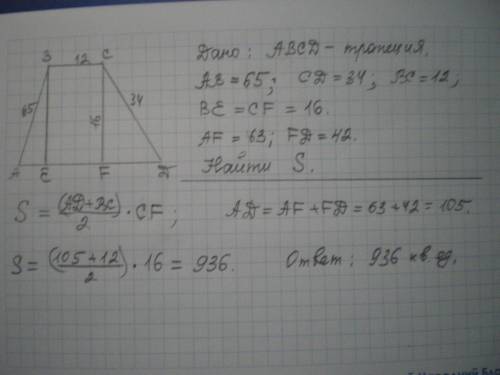 Дано: ABCD - трапеция.
AB = 65; CD = 34; BC = 12;
BE = CF = 16.
AF = 63; FD = 42.
Найти S.
B 12 C
65 16 34
A E F D
S = (AD+BC)/2 · CF; AD = AF + FD = 63 + 42 = 105.
S = (105+12)/2 · 16 = 936. Ответ: 936 кв. ед.